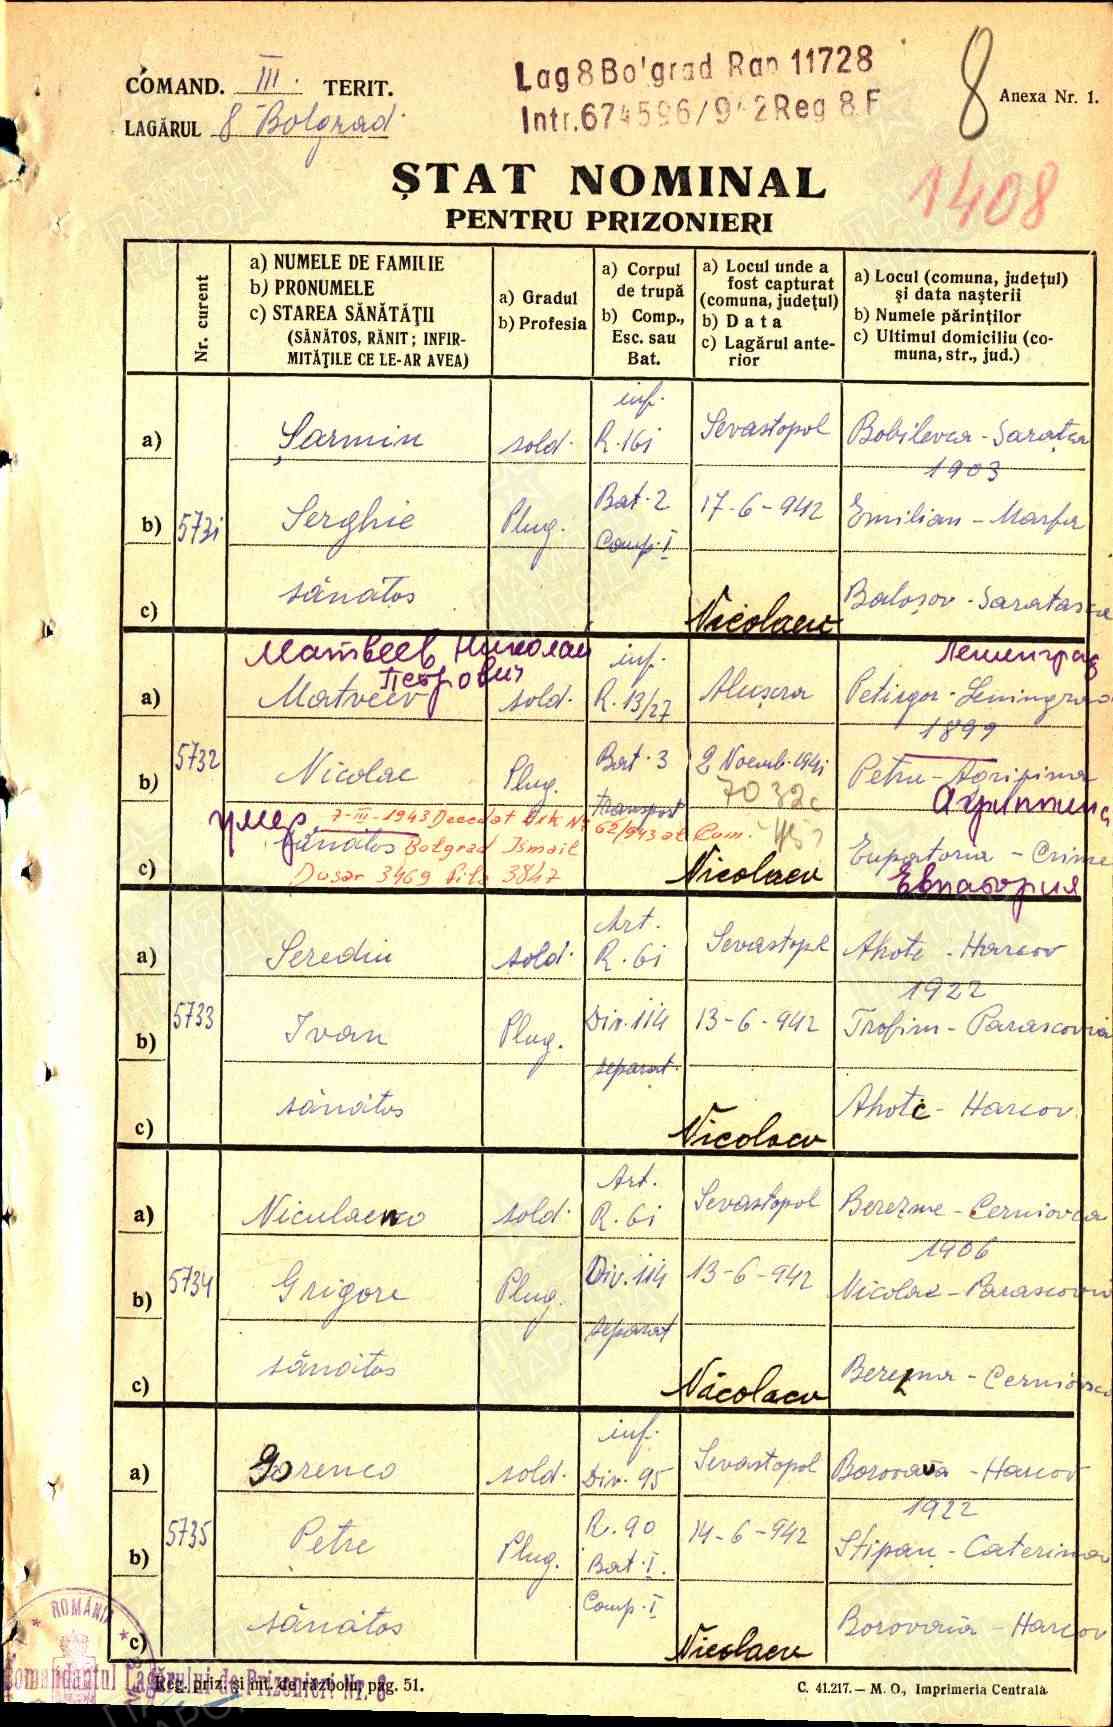 COMAND. III. TERIT.
LAGĂRUL 8 Bolgrad
Lag 8 Bolgrad Rap 11728
Intr. 674596/942 Reg 8 F
8
Anexa Nr. 1.
1408
ȘTAT NOMINAL
PENTRU PRIZONIERI
Nr. curent
a) NUMELE DE FAMILIE
b) PRONUMELE
c) STAREA SĂNĂTĂȚII
(SĂNĂTOS, RĂNIT; INFIR-
MITĂȚILE CE LE-AR AVEA)
a) Gradul
b) Profesia
a) Corpul
de trupă
b) Comp.,
Esc. sau
Bat.
a) Locul unde a
fost capturat
(comuna, județul)
b) Data
c) Lagărul ante-
rior
a) Locul (comuna, județul)
și data nașterii
b) Numele părinților
c) Ultimul domiciliu (co-
muna, str., jud.)
inf.
a) Șarmin sold. R. 161 Sevastopol Bobilevca - Sarațca
1903
b) 5731 Serghie Plug. Bat. 2 17-6-942 Emilian - Marfa
Comp. I
c) sănătos Nicolaev Baloșov - Saratasca
Матвеев Николай Ленинград
Петрович inf.
a) Matveev sold. R. 13/27 Alușca Petirgor - Leningrad
1899
b) 5732 Nicolae Plug. Bat. 3 2 Noemb. 1941 Petru - Agripina
transport 7032c Агриппина
умер 7-III-1943 Decedat 62/943 al Com.
c) sănătos Bolgrad Ismail Nicolaev Eupatoria - Crime
Dosar 3469 Fila 3847 Евпатория
Art.
a) Serediu sold. R. 61 Sevastopl Ahote - Harcov
1922
b) 5733 Ivan Plug. Div. 114 13-6-942 Trofim - Parascovia
separat.
c) sănătos Nicolaev Ahote - Harcov
Art.
a) Niculaenco sold. R. 61 Sevastopol Berezme - Cerniovca
1906
b) 5734 Grigore Plug. Div. 114 13-6-942 Nicolae - Parascovia
separat
c) sănătos Nicolaev Berezna - Cerniovsca
inf.
a) Gorenco sold. Div. 95 Sevastopol Borovaia - Harcov
1922
b) 5735 Petre Plug. R. 90 14-6-942 Stipan - Caterina
Bat. I.
Comp. I
c) sănătos Nicolaev Borovaia - Harcov
ROMÂNIA
Comandantul Lagărului de Prizonieri Nr. 8
Reg. priz. și int. de război, pag. 51.
C. 41.217.— M. O., Imprimeria Centrala